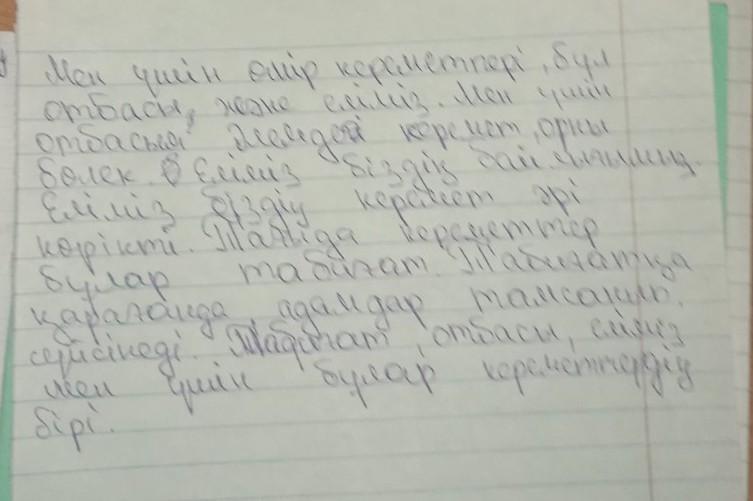 Мен үшін өмір кереметтері, бұл
отбасы, және еліміз. Мен үшін
отбасын керемет, орны
бөлек. Еліміз біздің бай
Еліміз біздің керемет әрі
көрікті. Тағыда кереметтер
бұлар табиғат. Табиғатқа
қарағанда адамдар тамсанып.
сүйсінеді. Табиғат, отбасы, еліміз
мен үшін бұлар кереметтердің
бірі.